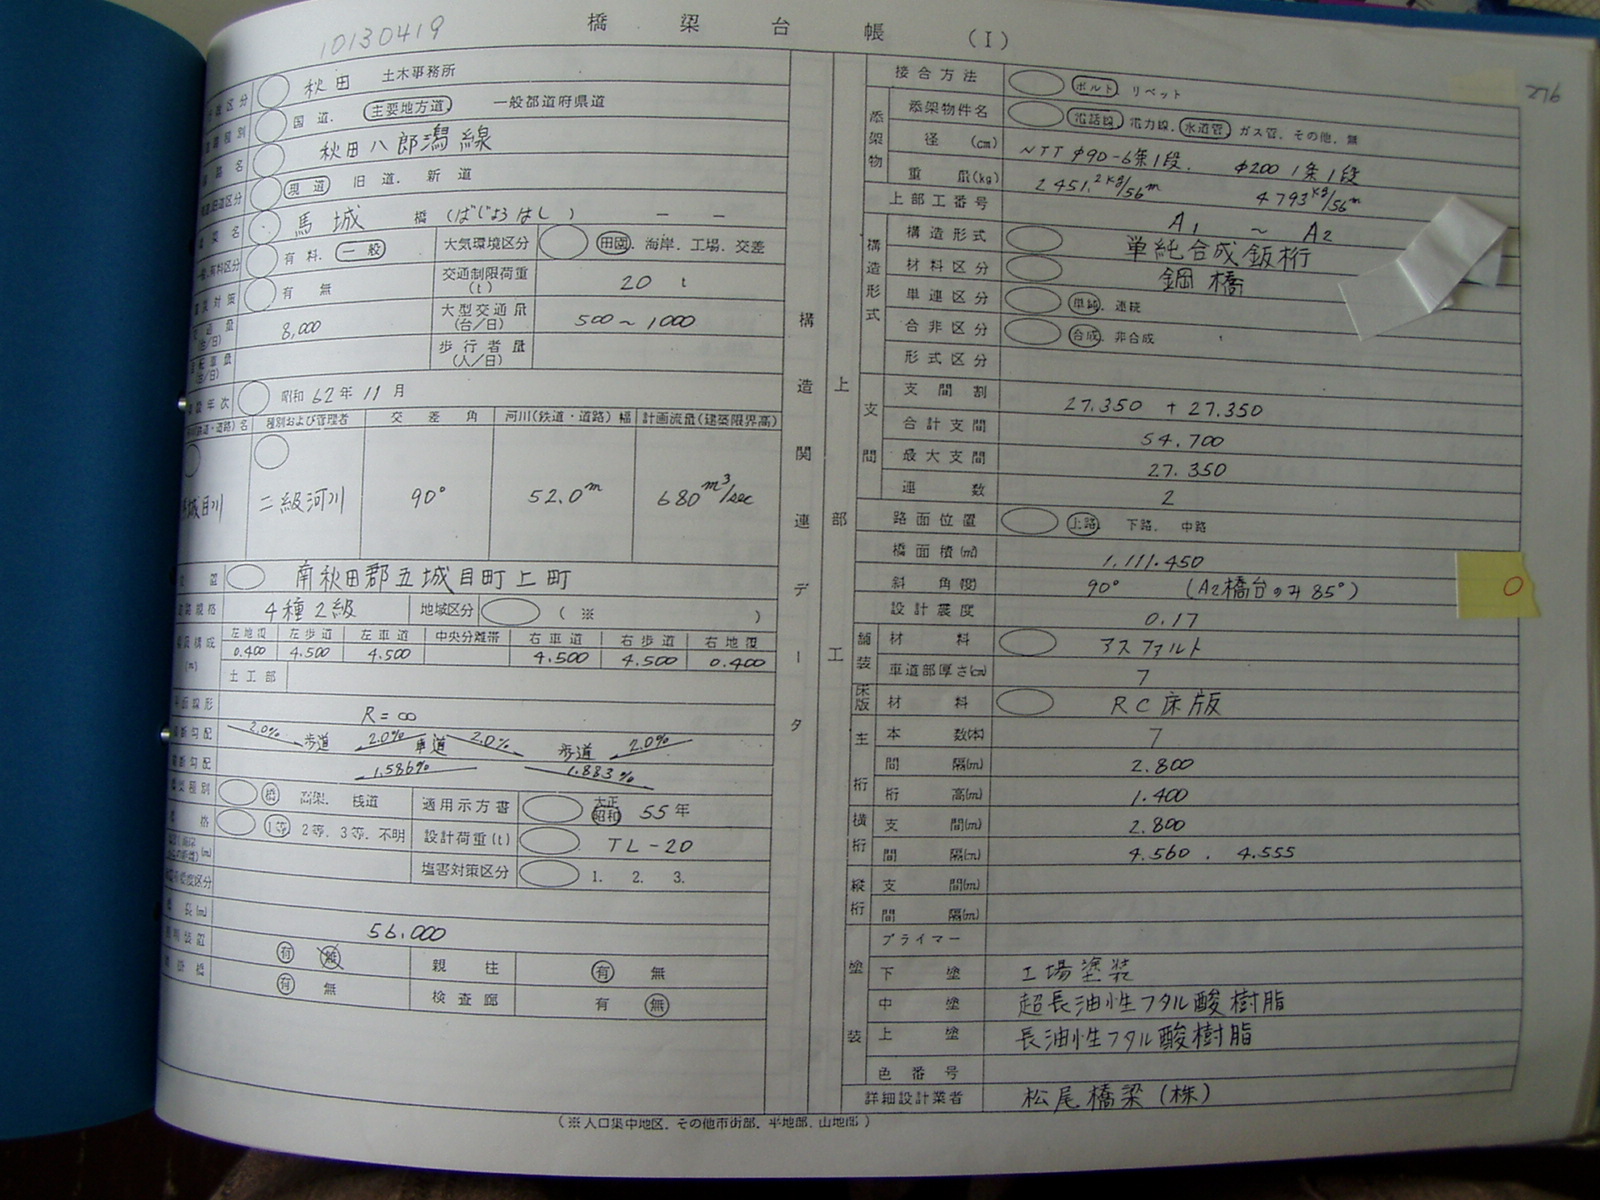 橋梁台帳 (I)
10130419
276
秋田 土木事務所
国道. 主要地方道 一般都道府県道
秋田八郎潟線
現道 旧道. 新道
馬城 橋 (ばじょうはし)
有料. 一般 大気環境区分 田園. 海岸. 工場. 交差
対策 有 無 交通制限荷重(t) 20 t
8,000 大型交通量(台/日) 500~1000
歩行者量(人/日)
年次 昭和 62年 11月
名 種別および管理者 交差角 河川(鉄道・道路)幅 計画流量(建築限界高)
城目川 二級河川 90° 52.0m 680m³/sec
南秋田郡五城目町上町
4種2級 地域区分 (※ )
左地覆 左歩道 左車道 中央分離帯 右車道 右歩道 右地覆
0.400 4.500 4.500 4.500 4.500 0.400
土工部
線形 R=∞
勾配 2.0% 歩道 2.0% 車道 2.0% 歩道 2.0%
勾配 1.586% 1.883%
種別 橋 高架. 桟道 適用示方書 大正 昭和 55年
格 1等 2等. 3等. 不明 設計荷重(t) TL-20
塩害対策区分 1. 2. 3.
長(m) 56.000
装置 有 無 親柱 有 無
橋 有 無 検査廊 有 無
(※人口集中地区. その他市街部. 平地部. 山地部)
構造関連データ
上部工
接合方法 ボルト リベット
添架物 添架物件名 電話線. 電力線. 水道管 ガス管. その他. 無
径 (cm) NTT φ90-6条1段. φ200 1条1段
重量(kg) 2451.2kg/56m 4793kg/56m
上部工番号 A1 ~ A2
構造形式 構造形式 単純合成鈑桁
材料区分 鋼橋
単連区分 単純. 連続
合非区分 合成. 非合成
形式区分
支間 支間割 27.350 + 27.350
合計支間 54.700
最大支間 27.350
連数 2
路面位置 上路 下路. 中路
橋面積(㎡) 1,111.450
斜角(度) 90° (A2橋台のみ85°)
設計震度 0.17
舗装 材料 アスファルト
車道部厚さ(cm) 7
床版 材料 RC床版
主桁 本数(本) 7
間隔(m) 2.800
桁高(m) 1.400
横桁 支間(m) 2.800
間隔(m) 4.560 . 4.555
縦桁 支間(m)
間隔(m)
塗装 プライマー
下塗 工場塗装
中塗 超長油性フタル酸樹脂
上塗 長油性フタル酸樹脂
色番号
詳細設計業者 松尾橋梁(株)